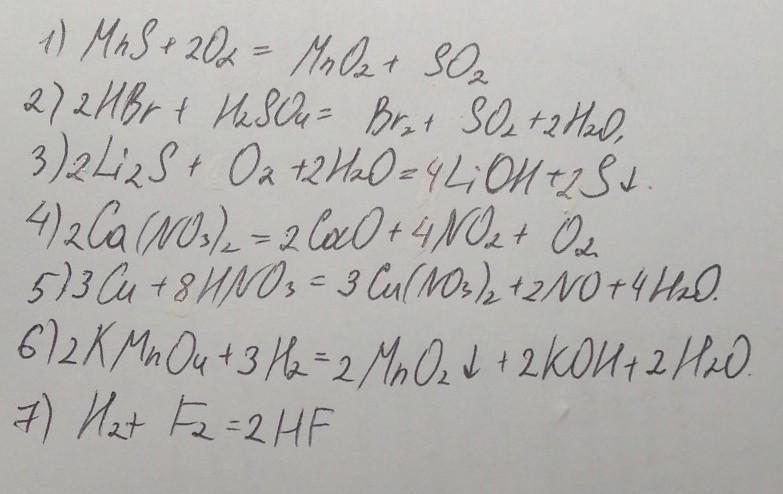 1) MnS + 2O₂ = MnO₂ + SO₂
2) 2HBr + H₂SO₄ = Br₂ + SO₂ + 2H₂O,
3) 2Li₂S + O₂ + 2H₂O = 4LiOH + 2S↓.
4) 2Ca(NO₃)₂ = 2CaO + 4NO₂ + O₂
5) 3Cu + 8HNO₃ = 3Cu(NO₃)₂ + 2NO + 4H₂O.
6) 2KMnO₄ + 3H₂ = 2MnO₂↓ + 2KOH + 2H₂O.
7) H₂ + F₂ = 2HF